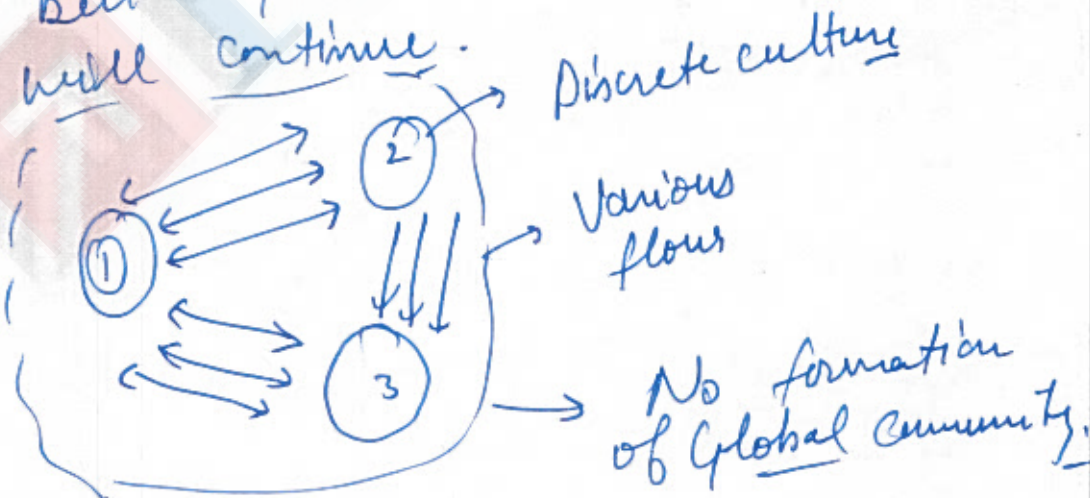 will continue.
Discrete culture
2
1
Various
flows
3
No formation
of Global Community.